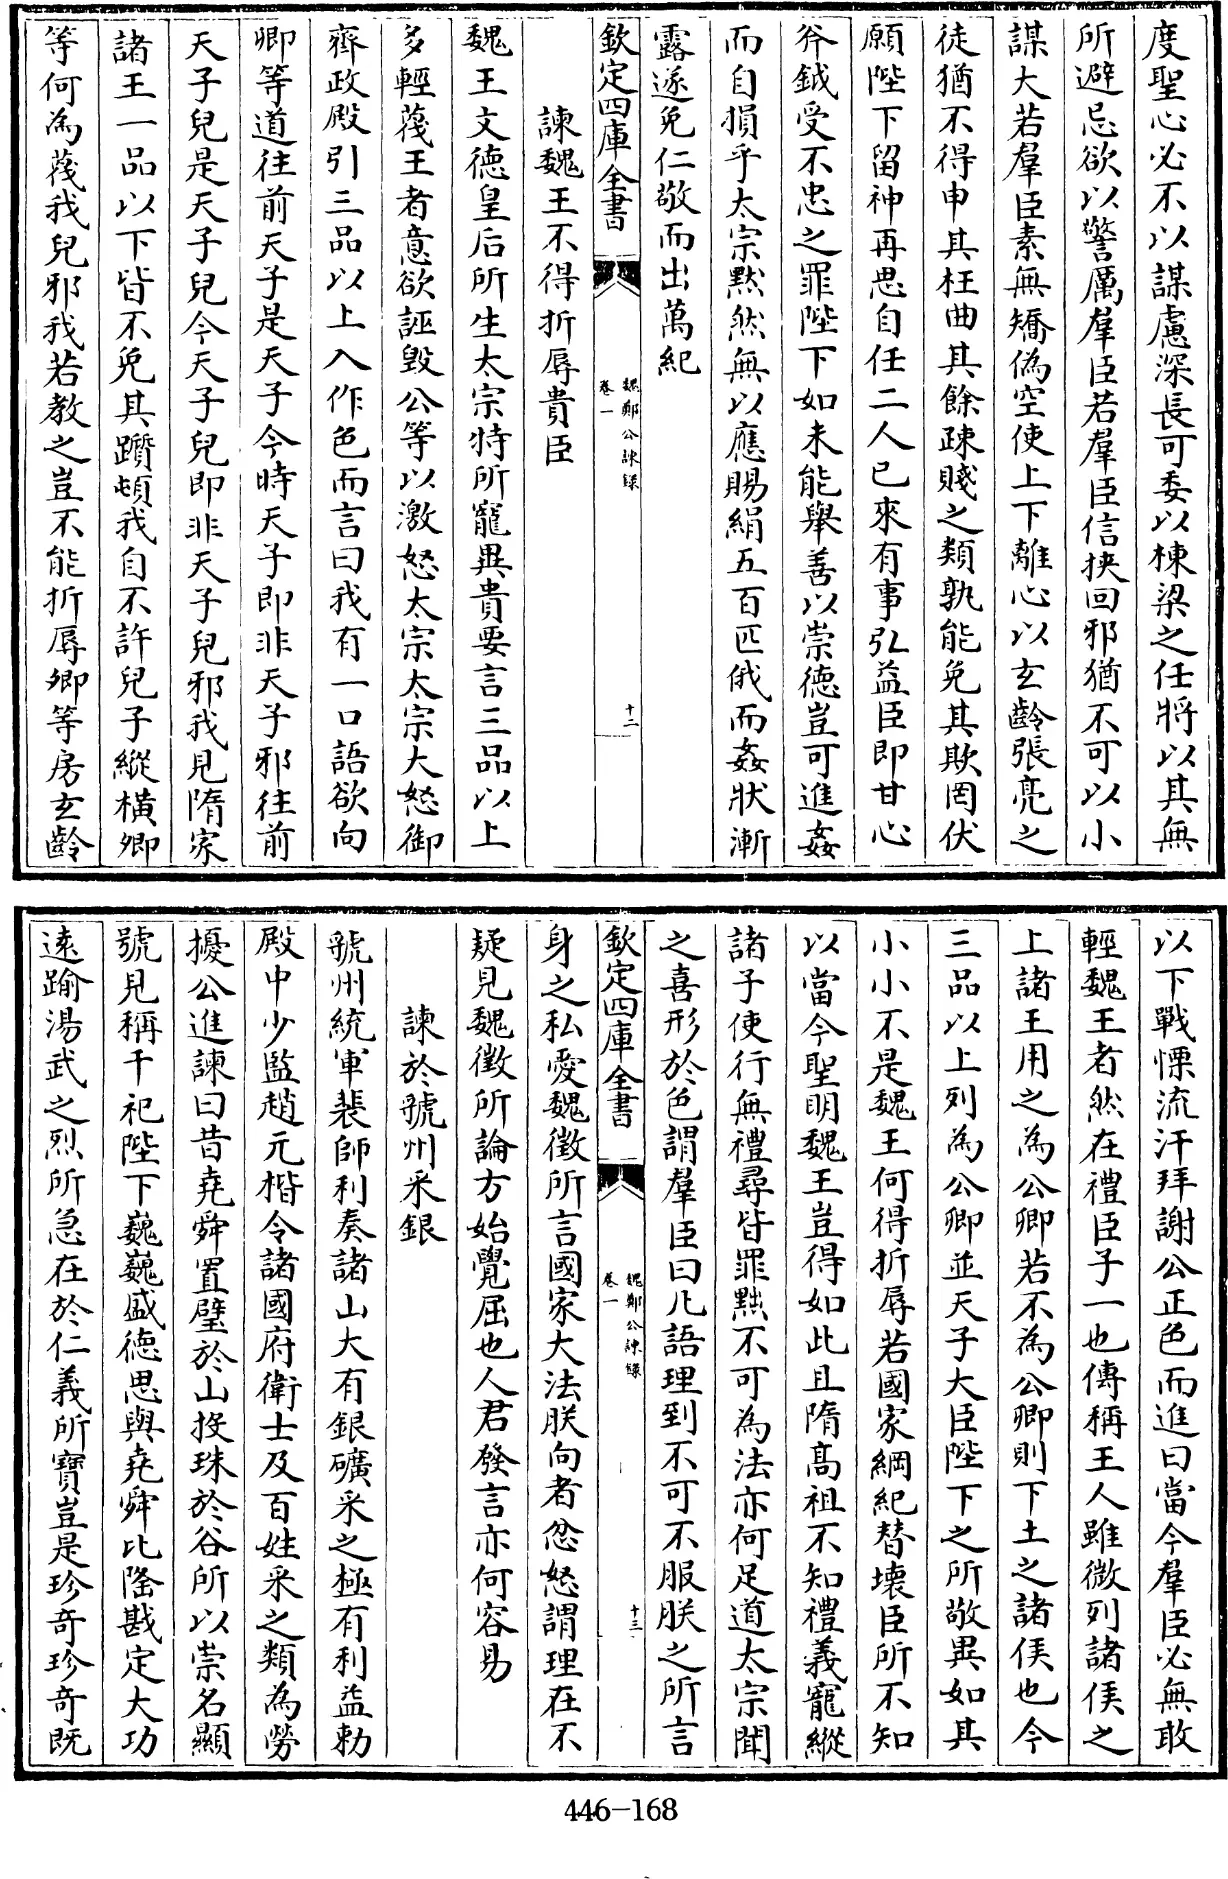 度聖心必不以謀慮深長可委以棟梁之任將以其無
所避忌欲以警厲羣臣若羣臣信挾回邪猶不可以小
謀大若羣臣素無矯偽空使上下離心以玄齡張亮之
徒猶不得申其枉曲其餘疎賤之類孰能免其欺罔伏
願陛下留神再思自任二人已來有事弘益臣即甘心
斧鉞受不忠之罪陛下如未能舉善以崇德豈可進姦
而自損乎太宗默然無以應賜絹五百匹俄而姦狀漸
露遂免仁敬而出萬紀
欽定四庫全書
魏鄭公諫錄
卷一
十二
諫魏王不得折辱貴臣
魏王文德皇后所生太宗特所寵異貴要言三品以上
多輕蔑王者意欲誣毀公等以激怒太宗太宗大怒御
齊政殿引三品以上入作色而言曰我有一口語欲向
卿等道往前天子是天子今時天子即非天子邪往前
天子兒是天子兒今天子兒即非天子兒邪我見隋家
諸王一品以下皆不免其躓頓我自不許兒子縱橫卿
等何為蔑我兒邪我若教之豈不能折辱卿等房玄齡
以下戰慄流汗拜謝公正色而進曰當今羣臣必無敢
輕魏王者然在禮臣子一也傳稱王人雖微列諸侯之
上諸王用之為公卿若不為公卿則下土之諸侯也今
三品以上列為公卿並天子大臣陛下之所敬異如其
小小不是魏王何得折辱若國家綱紀替壞臣所不知
以當今聖明魏王豈得如此且隋高祖不知禮義寵縱
諸子使行無禮尋皆罪黜不可為法亦何足道太宗聞
之喜形於色謂羣臣曰凡語理到不可不服朕之所言
欽定四庫全書
魏鄭公諫錄
卷一
十三
身之私愛魏徵所言國家大法朕向者忿怒謂理在不
疑見魏徵所論方始覺屈也人君發言亦何容易
諫於虢州采銀
虢州統軍裴師利奏諸山大有銀礦采之極有利益勅
殿中少監趙元楷令諸國府衛士及百姓采之類為勞
擾公進諫曰昔堯舜置璧於山投珠於谷所以崇名顯
號見稱千祀陛下巍巍盛德思與堯舜比隆戡定大功
遠踰湯武之烈所急在於仁義所寶豈是珍奇珍奇既
446-168